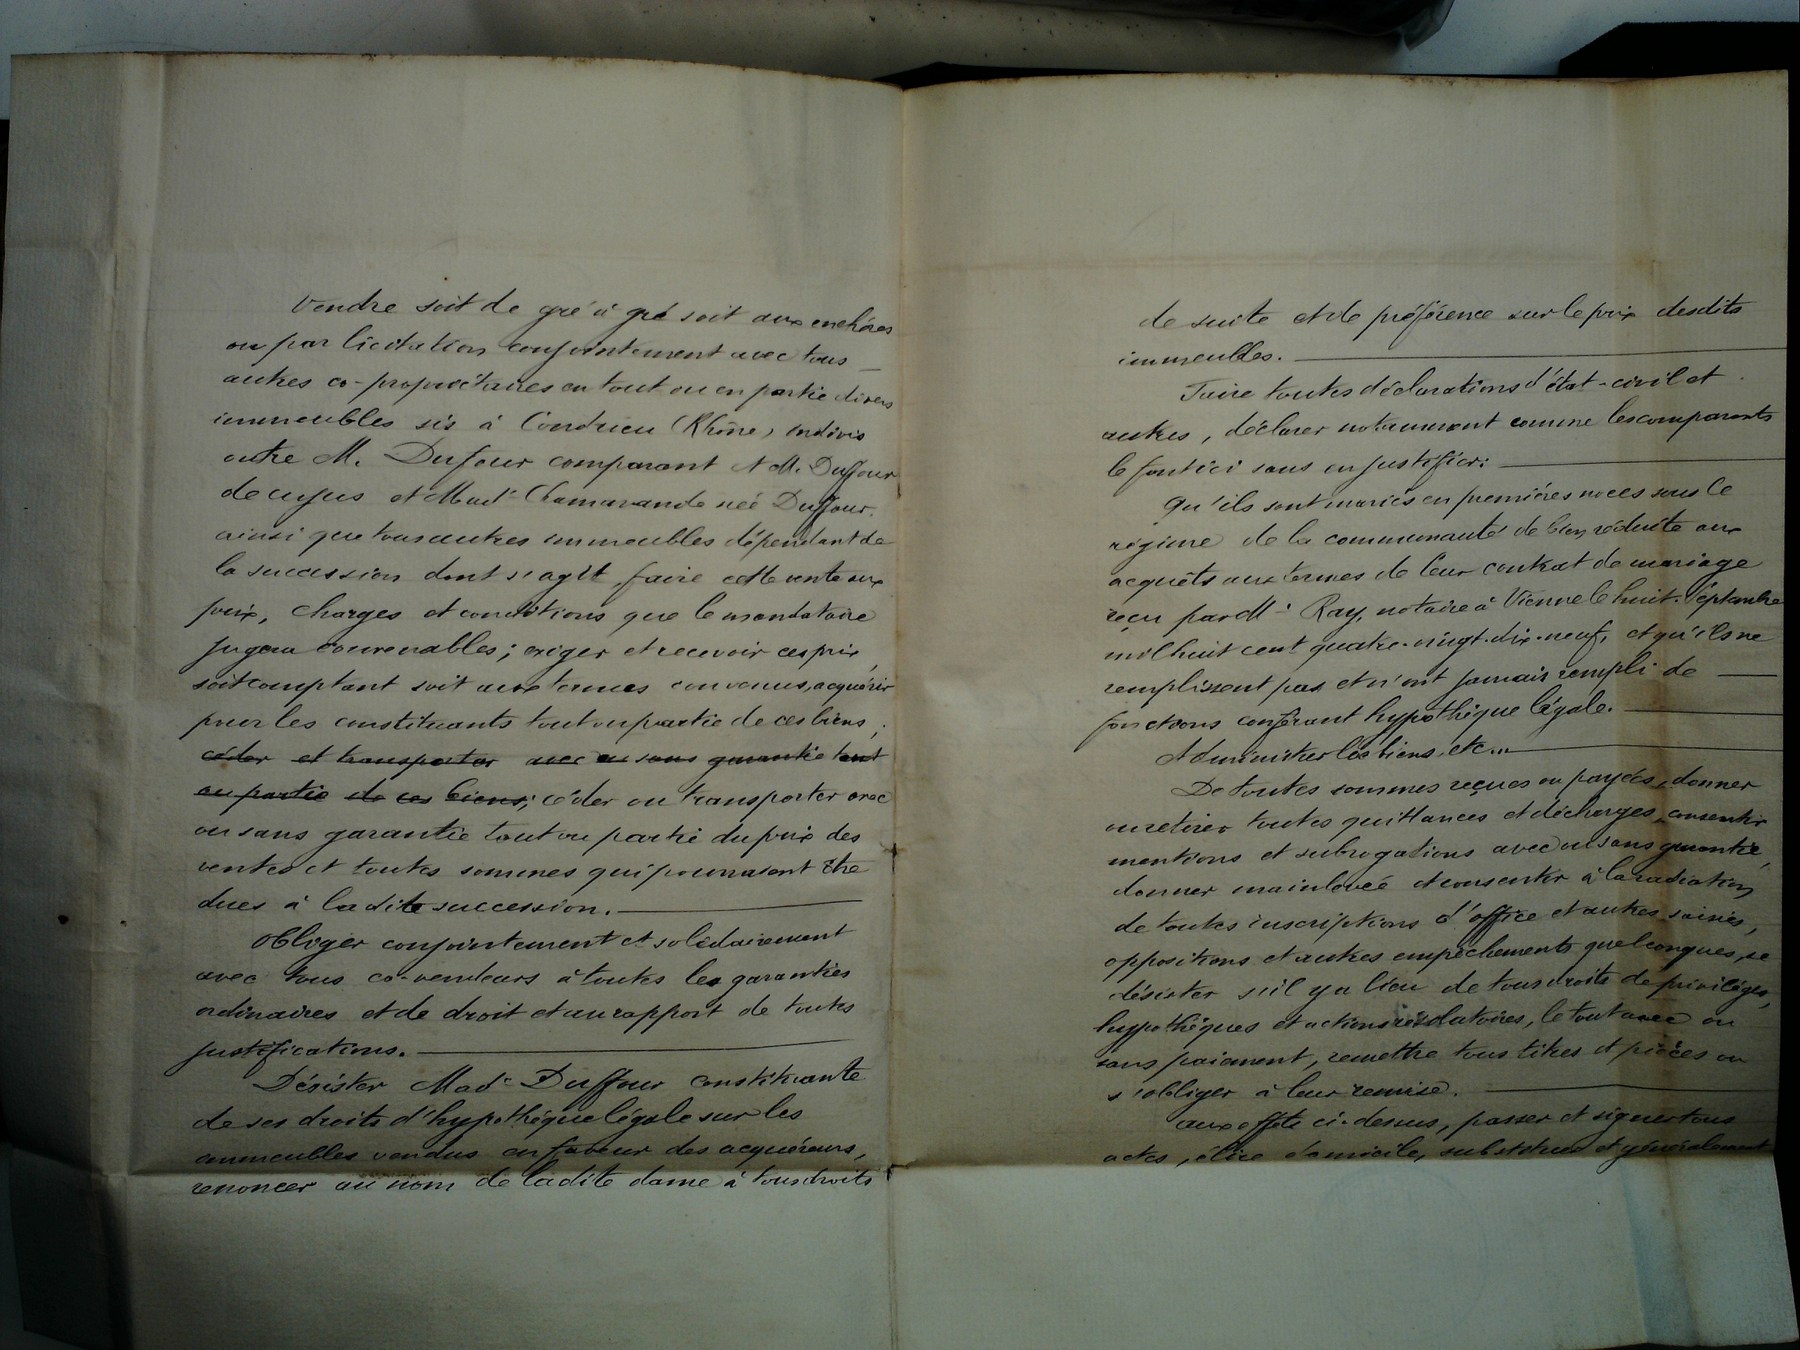 Vendre soit de gré à gré soit aux enchères
ou par licitation conjointement avec tous
autres co-propriétaires en tout ou en partie divers
immeubles sis à Condrieu (Rhône) indivis
entre M. Duffour comparant et M. Duffour
de cujus et Made Chamarande née Duffour.
ainsi que tous autres immeubles dépendant de
la succession dont s'agit, faire cette vente aux
prix, charges et conditions que le mandataire
jugera convenables; exiger et recevoir ces prix,
soit comptant soit aux termes convenus, acquérir
pour les constituants tout ou partie de ces biens;
céder et transporter avec ou sans garantie tout
ou partie de ces biens; céder ou transporter avec
ou sans garantie tout ou partie du prix des
ventes et toutes sommes qui pourraient être
dues à la dite succession.
Obliger conjointement et solidairement
avec tous co-vendeurs à toutes les garanties
ordinaires et de droit et au rapport de toutes
justifications.
Désister Made Duffour constituante
de ses droits d'hypothèque légale sur les
immeubles vendus en faveur des acquéreurs,
renoncer au nom de ladite dame à tous droits
de suite et de préférence sur le prix desdits
immeubles.
Faire toutes déclarations d'état-civil et
autres, déclarer notamment comme les comparants
le font ici sans en justifier:
Qu'ils sont mariés en premières noces sous le
régime de la communauté de biens réduite aux
acquêts aux termes de leur contrat de mariage
reçu par Me Ray, notaire à Vienne le huit Septembre
mil huit cent quatre-vingt-dix-neuf, et qu'ils ne
remplissent pas et n'ont jamais rempli de
fonctions conférant hypothèque légale.
Administrer les biens, etc...
De toutes sommes reçues ou payées, donner
ou retirer toutes quittances et décharges, consentir
mentions et subrogations avec ou sans garantie,
donner mainlevée et consentir à la radiation
de toutes inscriptions d'office et autres saisies,
oppositions et autres empêchements quelconques, se
désister s'il y a lieu de tous droits de privilèges,
hypothèques et actions résolutoires, le tout avec ou
sans paiement, remettre tous titres et pièces ou
s'obliger à leur remise.
Aux effets ci-dessus, passer et signer tous
actes, élire domicile, substituer et généralement